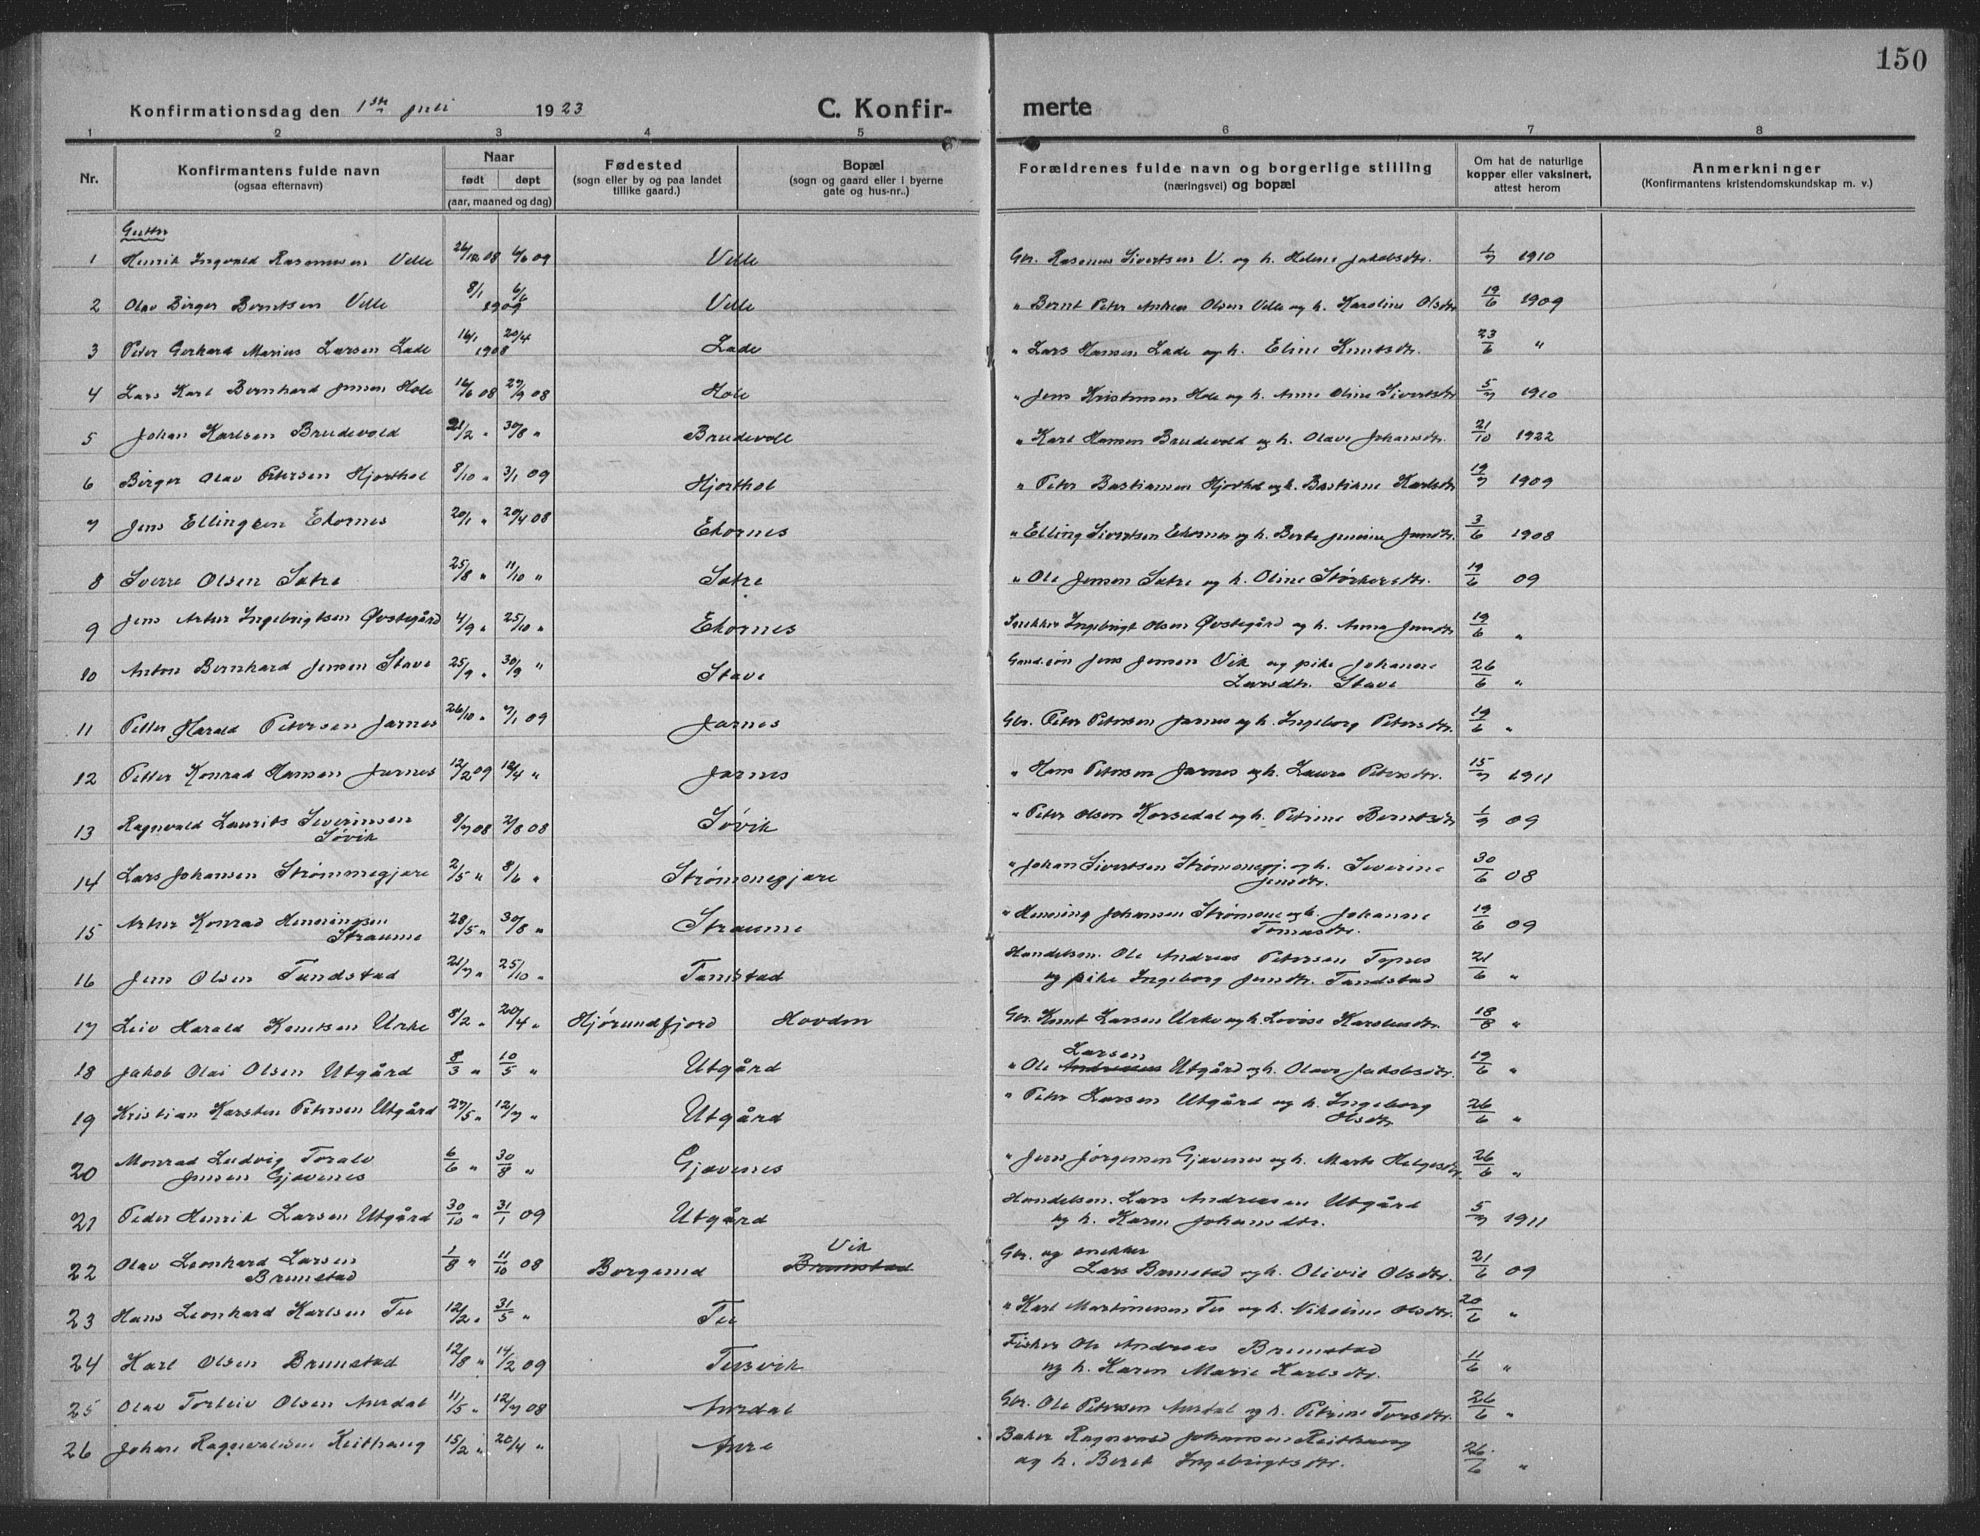 150
Konfirmationsdag den 1ste juli 1923 C. Konfir- merte
1 2 3 4 5 6 7 8
Nr. Konfirmantens fulde navn (ogsaa efternavn) Naar født døpt (aar, maaned og dag) Fødested (sogn eller by og paa landet tillike gaard.) Bopæl (sogn og gaard eller i byerne gate og hus-nr..) Forældrenes fulde navn og borgerlige stilling (næringsvei) og bopæl Om hat de naturlige kopper eller vaksinert, attest herom Anmerkninger (Konfirmantens kristendomskundskap m. v.)
Gutter
1 Henrik Ingvald Rasmussen Velle 26/12 08 6/6 09 Velle Gbr. Rasmus Sivertsen V. og h. Helene Jakobsdtr. 1/7 1910
2 Olav Birger Berntsen Velle 8/1 6/6 1909 Velle " Bernt Peter Andreas Olsen Velle og h. Karoline Olsdtr 19/6 1909
3 Peter Gerhard Marius Larsen Lade 16/1 20/4 1908 Lade " Lars Hansen Lade og h. Eline Knutsdtr. 23/6 "
4 Lars Karl Bernhard Jensen Hole 16/6 08 27/9 08 Hole " Jens Kristensen Hole og h. Anne Oline Sivertsdtr 5/7 1910
5 Johan Karlsen Brudevold 21/2 " 30/8 " Brudevoll " Karl Hansen Brudevold og h. Olave Johansdtr. 21/10 1922
6 Birger Olav Petersen Hjorthol 8/10 " 3/1 09 Hjorthol " Peter Bastiansen Hjorthol og h. Bastiane Karlsdtr 19/7 1909
7 Jens Ellingsen Ekornes 20/1 " 20/4 08 Ekornes " Elling Sivertsen Ekornes og h. Berte Jensine Jensdtr. 3/6 1908
8 Sverre Olsen Satre 25/8 " 11/10 " Satre " Ole Jensen Satre og h. Oline Størkersdtr. 19/6 09
9 Jens Artur Ingebrigtsen Øvstegård 4/9 " 25/10 " Ekornes Snekker Ingebrigt Olsen Øvstegård og h. Anna Jensdtr 19/6 "
10 Anton Bernhard Jensen Stave 25/9 " 30/9 " Stave Gardsøn Jens Jensen Vik og pike Johanne 26/6 "
Larsdtr. Stave
11 Petter Harald Petersen Jarnes 26/10 " 7/1 09 Jarnes Gbr. Peter Petersen Jarnes og h. Ingeborg Petersdtr. 19/6 "
12 Petter Konrad Hansen Jarnes 12/2 09 12/4 " Jarnes " Hans Petersen Jarnes og h. Laura Petersdtr. 15/7 1911
13 Ragnvald Laurits Severinsen 8/7 08 2/8 08 Søvik " Peter Olsen Korsedal og h. Petrine Berntsdtr 1/7 09
Søvik
14 Lars Johansen Strømmegjære 2/5 " 8/6 " Strømmegjære " Johan Sivertsen Strømmegj. og h. Severine 30/6 08
Jensdtr.
15 Artur Konrad Henningsen 28/5 " 30/8 " Straume " Henning Johansen Strømme og h. Johanne 19/6 09
Straume Tomasdtr.
16 Jens Olsen Tandstad 21/7 " 25/10 " Tandstad Handelsm. Ole Andreas Petersen Tepnes 21/6 "
og pike Ingeborg Jensdtr. Tandstad
17 Leiv Harald Knutsen Urke 8/2 " 20/4 " Hjørundfjord Hovden Gbr. Knut Larsen Urke og h. Lovise Karolusdtr. 18/8 "
Larsen
18 Jakob Olai Olsen Utgård 8/3 " 10/5 " Utgård " Ole Andreasen Utgård og h. Olave Jakobsdtr. 19/6 "
19 Kristian Karsten Petersen Utgård 27/5 " 12/7 " Utgård " Peter Larsen Utgård og h. Ingeborg 26/6 "
Olsdtr
20 Monrad Ludvig Toralv 6/6 " 30/8 " Gjævenes " Jens Jørgensen Gjævenes og h. Marte Helgesdtr. 26/6 "
Jensen Gjævenes
21 Peder Henrik Larsen Utgård 30/10 " 31/1 09 Utgård Handelsm. Lars Andreasen Utgård 5/7 1911
og h. Karen Johansdtr.
Vik
22 Olav Leonhard Larsen 1/8 " 11/10 08 Borgund Brunstad Gbr. og snekker 21/6 09
Brunstad Lars Brunstad og h. Olivie Olsdtr.
23 Hans Leonhard Karlsen Tu 12/2 " 31/5 " Tu " Karl Martinussen Tu og h. Nikoline Olsdtr. 20/6 "
24 Karl Olsen Brunstad 12/8 " 14/2 09 Tusvik Fisker Ole Andreas Brunstad 11/6 "
og h. Karen Marie Karlsdtr.
25 Olav Torleiv Olsen Aurdal 11/5 " 12/7 08 Aurdal Gbr. Ole Petersen Aurdal og h. Petrine Toresdtr. 26/6 "
26 Johan Ragnvaldsen Reithaug 15/2 " 20/4 " Aure Baker Ragnvald Johansen Reithaug 26/6 "
og h. Beret Ingebrigtsdtr.